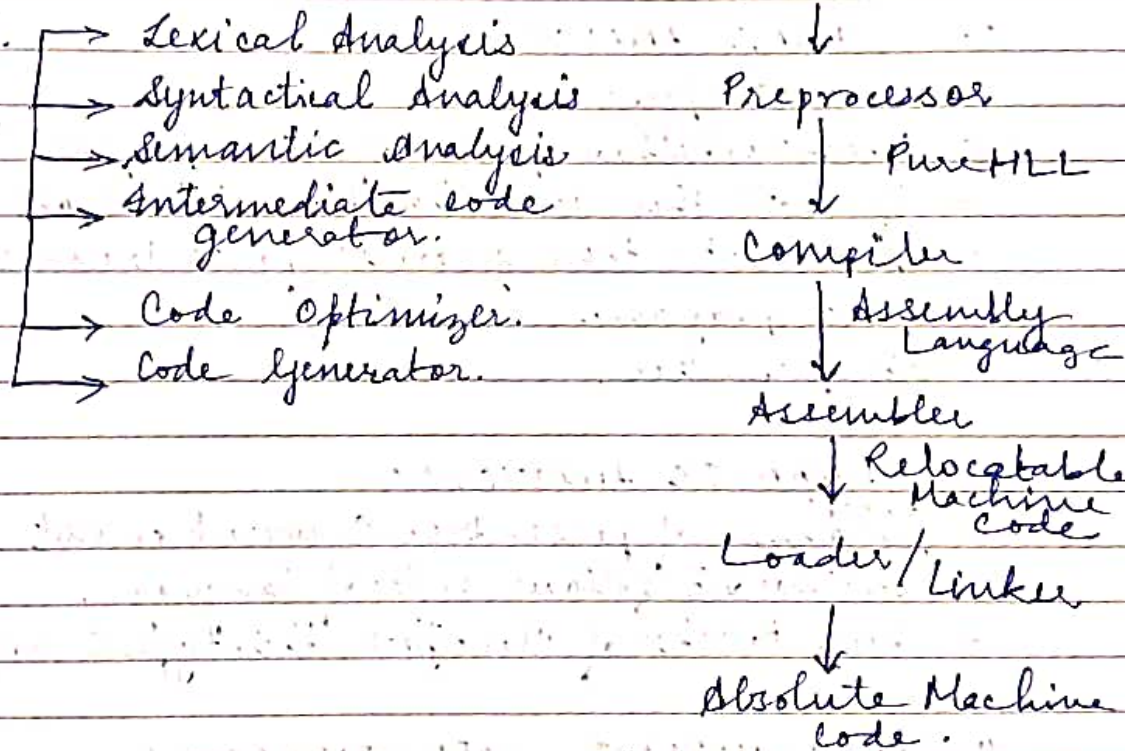 Lexical Analysis
Syntactical Analysis
Semantic Analysis
Intermediate code
generator.
Code Optimizer.
Code Generator.
Preprocessor
Pure HLL
Compiler
Assembly
Language
Assembler
Relocatable
Machine
Code
Loader/
Linker
Absolute Machine
Code.